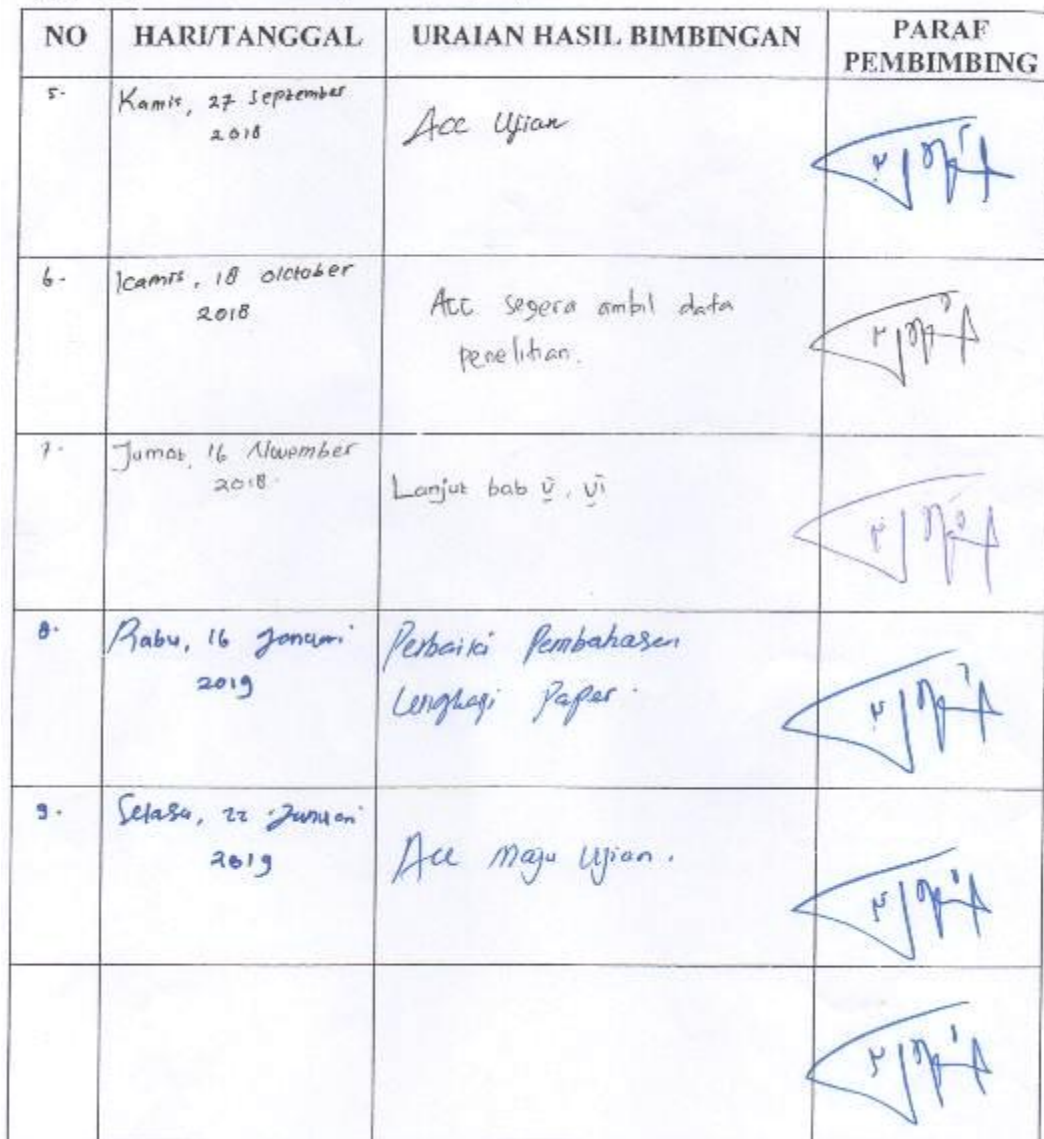 NO HARI/TANGGAL URAIAN HASIL BIMBINGAN PARAF
PEMBIMBING
5. Kamis, 27 September
2018
Acc Ujian
6. Kamis, 18 oktober
2018
Acc segera ambil data
penelitian.
7. Jumat, 16 November
2018.
Lanjut bab v, vi
8. Rabu, 16 Januari
2019
Perbaiki Pembahasan
Lengkapi Paper.
9. Selasa, 22 Januari
2019
Acc maju Ujian.